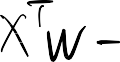 X^T W -